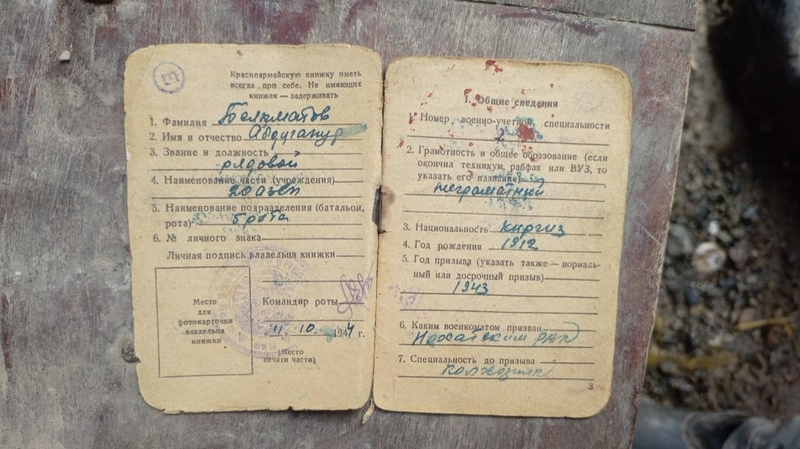 Красноармейскую книжку иметь
всегда при себе. Не имеющих
книжек — задерживать
1. Фамилия Бекматов
2. Имя и отчество Абдугапур
3. Звание и должность
рядовой
4. Наименование части (учреждения)
5. Наименование подразделения (батальон,
рота) 5 рота
6. № личного знака
Личная подпись владельца книжки
Место
для
фотокарточки
владельца
книжки
Командир роты
11. 10. 1944 г.
(Место
печати части)
I. Общие сведения
1. Номер военно-учетной специальности
2
2. Грамотность и общее образование (если
окончил техникум, рабфак или ВУЗ, то
указать его название)
неграмотный
3. Национальность киргиз
4. Год рождения 1912
5. Год призыва (указать также — нормаль-
ный или досрочный призыв)
1943
6. Каким военкоматом призван
7. Специальность до призыва
колхозник
3